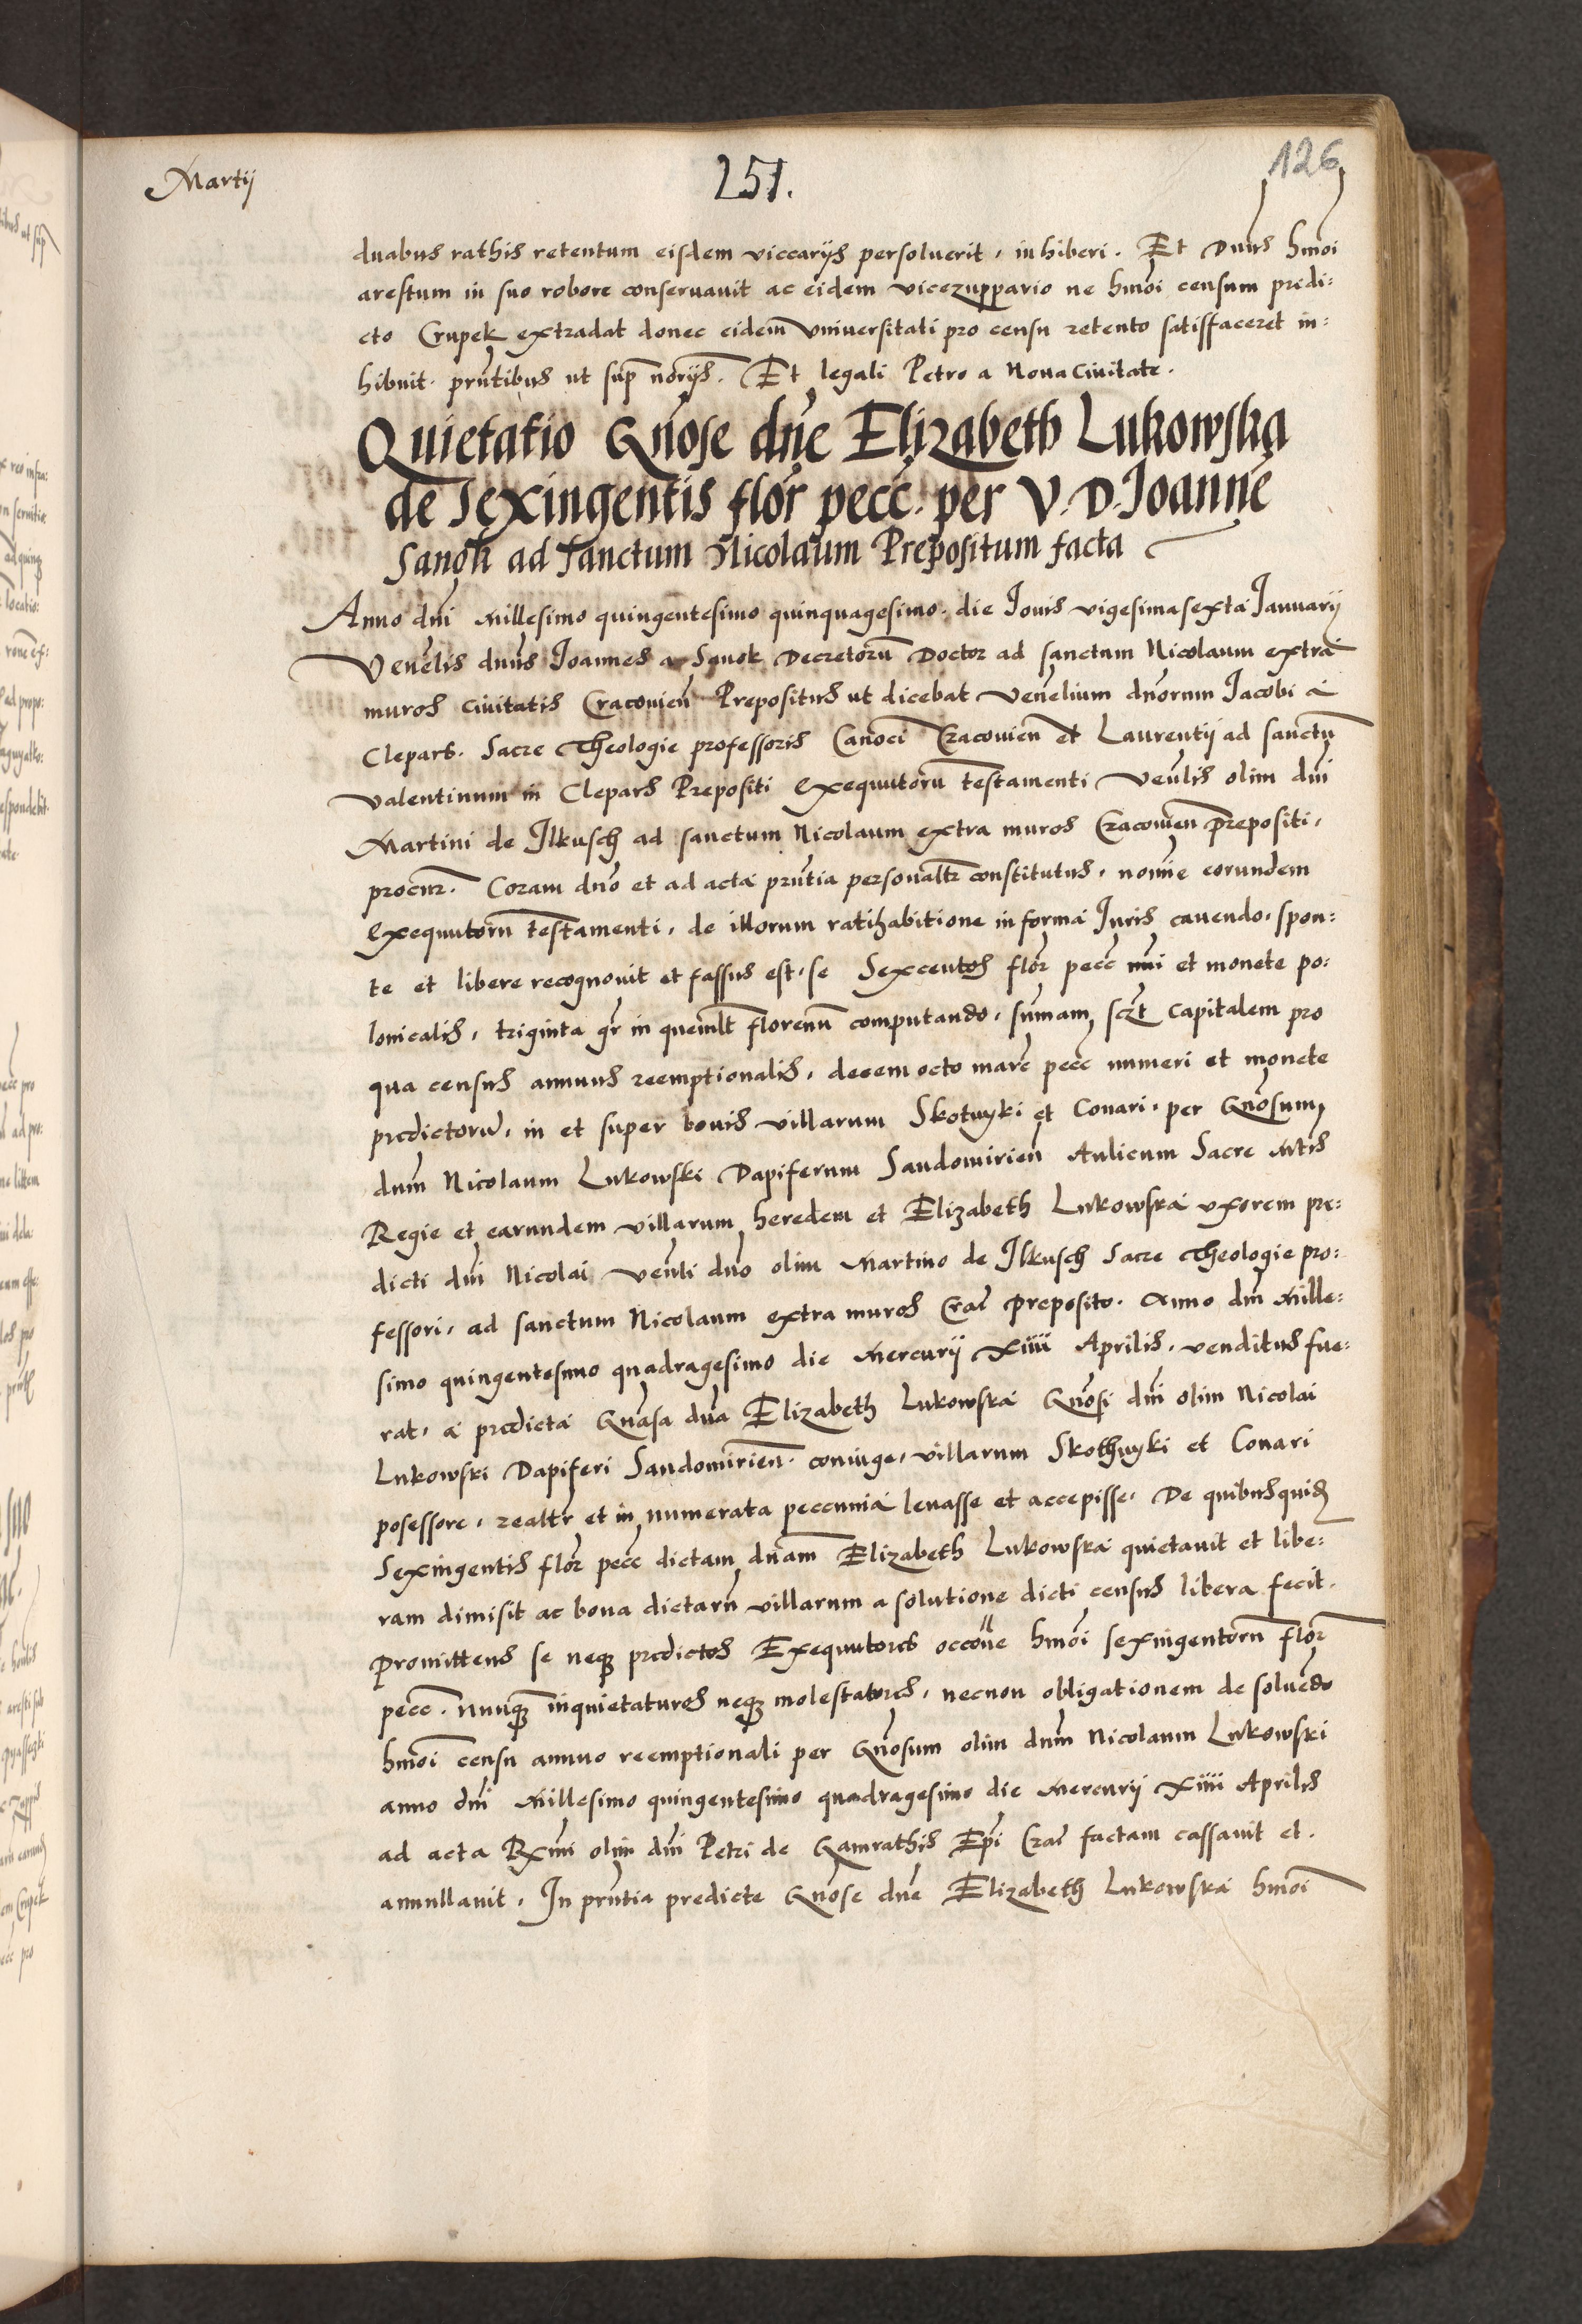 Martij
251.
126
duabus rathis retentum eisdem viccarijs persoluerit, in hiberi. Et Dnus hmoi
arestum in suo robore conseruauit ac eidem vicezuppario ne hmoi censum predi:
cto Crupek extradat donec eidem Vniuersitati pro censu retento satisfaceret in:
hibuit. prntibus ut sup norijs. Et legali Petro a Noua Ciuitate.
Quietatio Gnose dne Elizabeth Lukowska
de Sexingentis flor pecc. per V. D. Joanne
Sanok ad Sanctum Nicolaum Prepositum facta
Anno dni Millesimo quingentesimo quinquagesimo. die Jouis vigesimasexta Januarij
Venelis dnus Joannes a Sanok Decretoru Doctor ad sanctum Nicolaum extra
muros Ciuitatis Cracouien Prepositus ut dicebat Venelium dnorum Jacobi a
Clepars. Sacre Theologie professoris Canoci Cracouien et Laurentij ad sanctu
Valentinum in Clepars Prepositi Exequutoru testamenti Venlis olim dni
Martini de Ilkusch ad sanctum Nicolaum extra muros Cracouien prepositi,
procur. Coram dno et ad acta prntia personaltr constitutus, nomie eorundem
Exequutoru testamenti, de illorum ratihabitione in forma Juris cauendo, spon:
te et libere recognouit et fassus est, se Sexcentos flor pecc nui et monete po:
lonicalis, triginta gr in quemlt florenu computando, sumam sczt capitalem pro
qua census annuus reemptionalis, decem octo marc pecc numeri et monete
predictoru, in et super bonis villarum Skotnyki et Conari, per Gnosum
dum Nicolaum Lukowski Dapiferum Sandomirien Aulicum Sacre Mtis
Regie et earundem villarum heredem et Elizabeth Lukowska vxorem pre:
dicti dni Nicolai Venli dno olim Martino de Ilkusch Sacre Theologie pro:
fessori, ad sanctum Nicolaum extra muros Crac preposito. Anno dni Mille:
simo quingentesimo quadragesimo die Mercurij Xiiii Aprilis, venditus fue:
rat, a predicta Gnasa dna Elizabeth Lukowska Gnosi dni olim Nicolai
Lukowski Dapiferi Sandomirien. coniuge, villarum Skothnyki et Conari
posessore, realtr et in numerata peccunia leuasse et accepisse, De quibusquid
Sexingentis flor pecc dictam dnam Elizabeth Lukowska quietauit et libe:
ram dimisit ac bona dictaru villarum a solutione dicti census libera fecit.
Promittens se neq predictos Exequutores occone hmoi sexingentoru flor
pecc. nunq inquietaturos neq molestatores, necnon obligationem de soluedo
hmoi censu annuo reemptionali per Gnosum olim dnm Nicolaum Lukowski
anno dni Millesimo quingentesimo quadragesimo die Mercurij Xiiii Aprilis
ad acta Rxmi olim dni Petri de Gamrathis Epi Crac factam cassauit et.
annullauit. In prntia predicte Gnose dne Elizabeth Lukowska hmoi